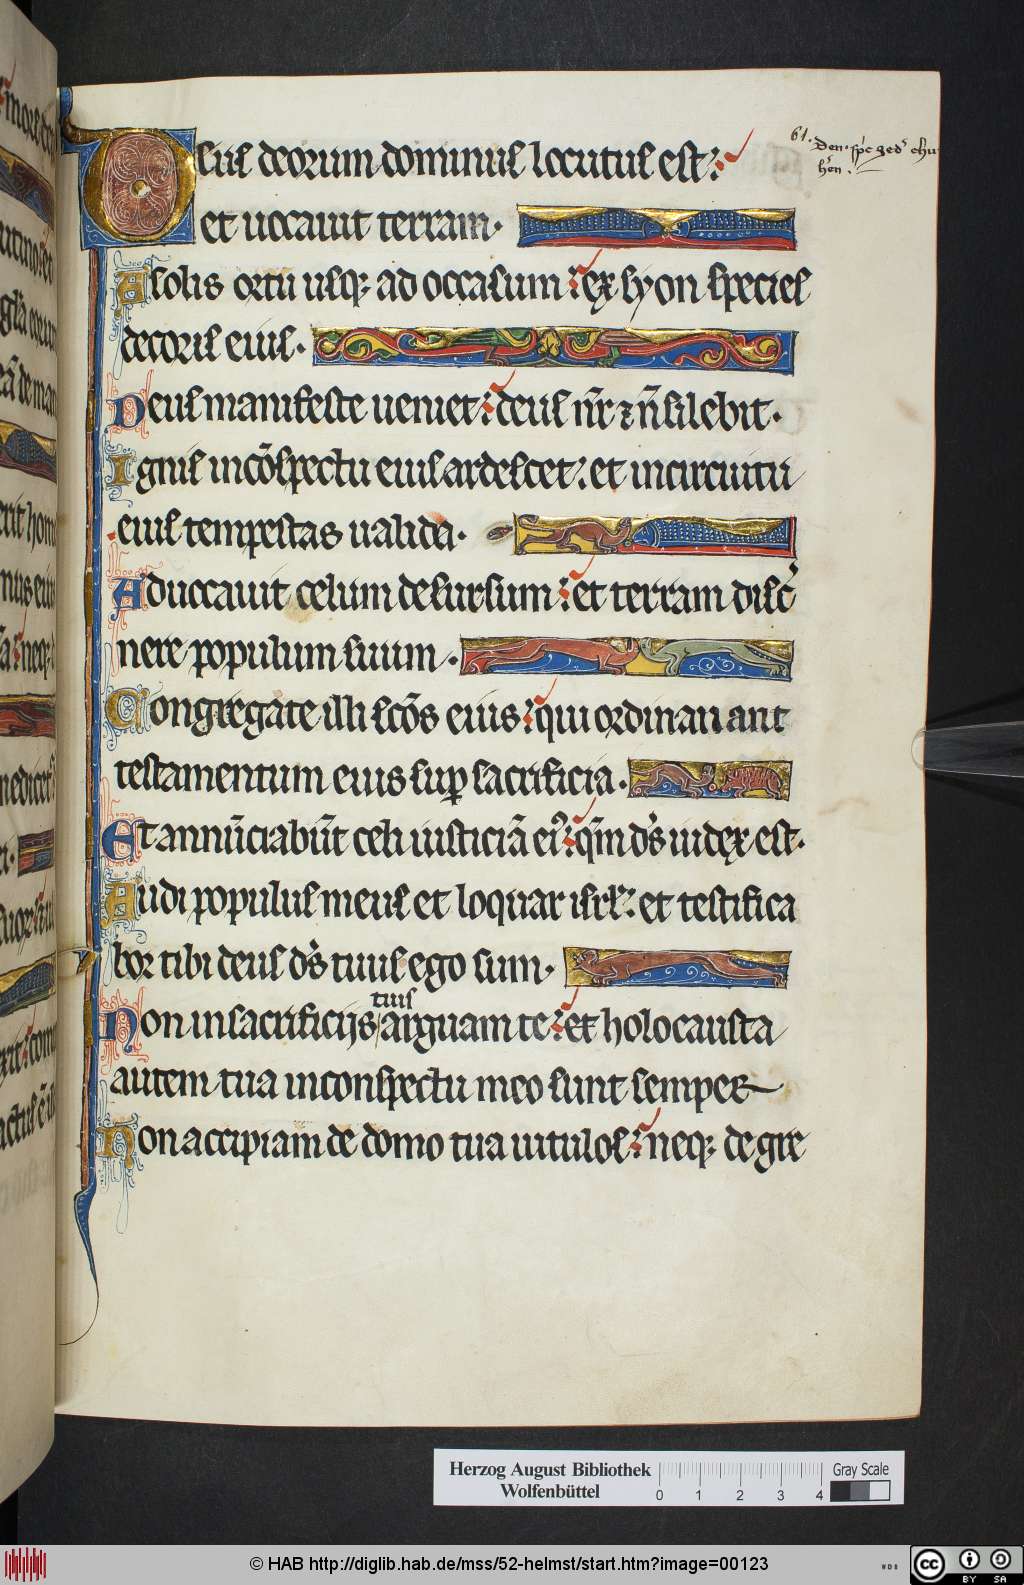 Deus deorum dominus locutus est:
et uocauit terram.
A solis ortu usq; ad occasum: ex syon species
decoris eius.
Deus manifeste ueniet: deus nr̄ ⁊ n̄ silebit.
Ignis in cōspectu eius ardescet: et in circuitu
eius tempestas ualida.
Aduocauit celum desursum: et terram disc̄
nere populum suum.
Congregate illi scōs eius: qui ordinauant
testamentum eius suꝑ sacrificia.
Et annūciabūt celi iusticiā ei᷒: qm̄ ds̄ iudex est.
Audi populus meus et loquar isrl̄: et testifica
bor tibi deus ds̄ tuus ego sum.
tuis
Non in sacrificijs arguam te: et holocausta
autem tua in conspectu meo sunt semper
Non accipiam de domo tua uitulos: neq; de gre
61.
Herzog August Bibliothek
Wolfenbüttel
0 1 2 3 4
Gray Scale
© HAB http://diglib.hab.de/mss/52-helmst/start.htm?image=00123
WDB
cc BY SA